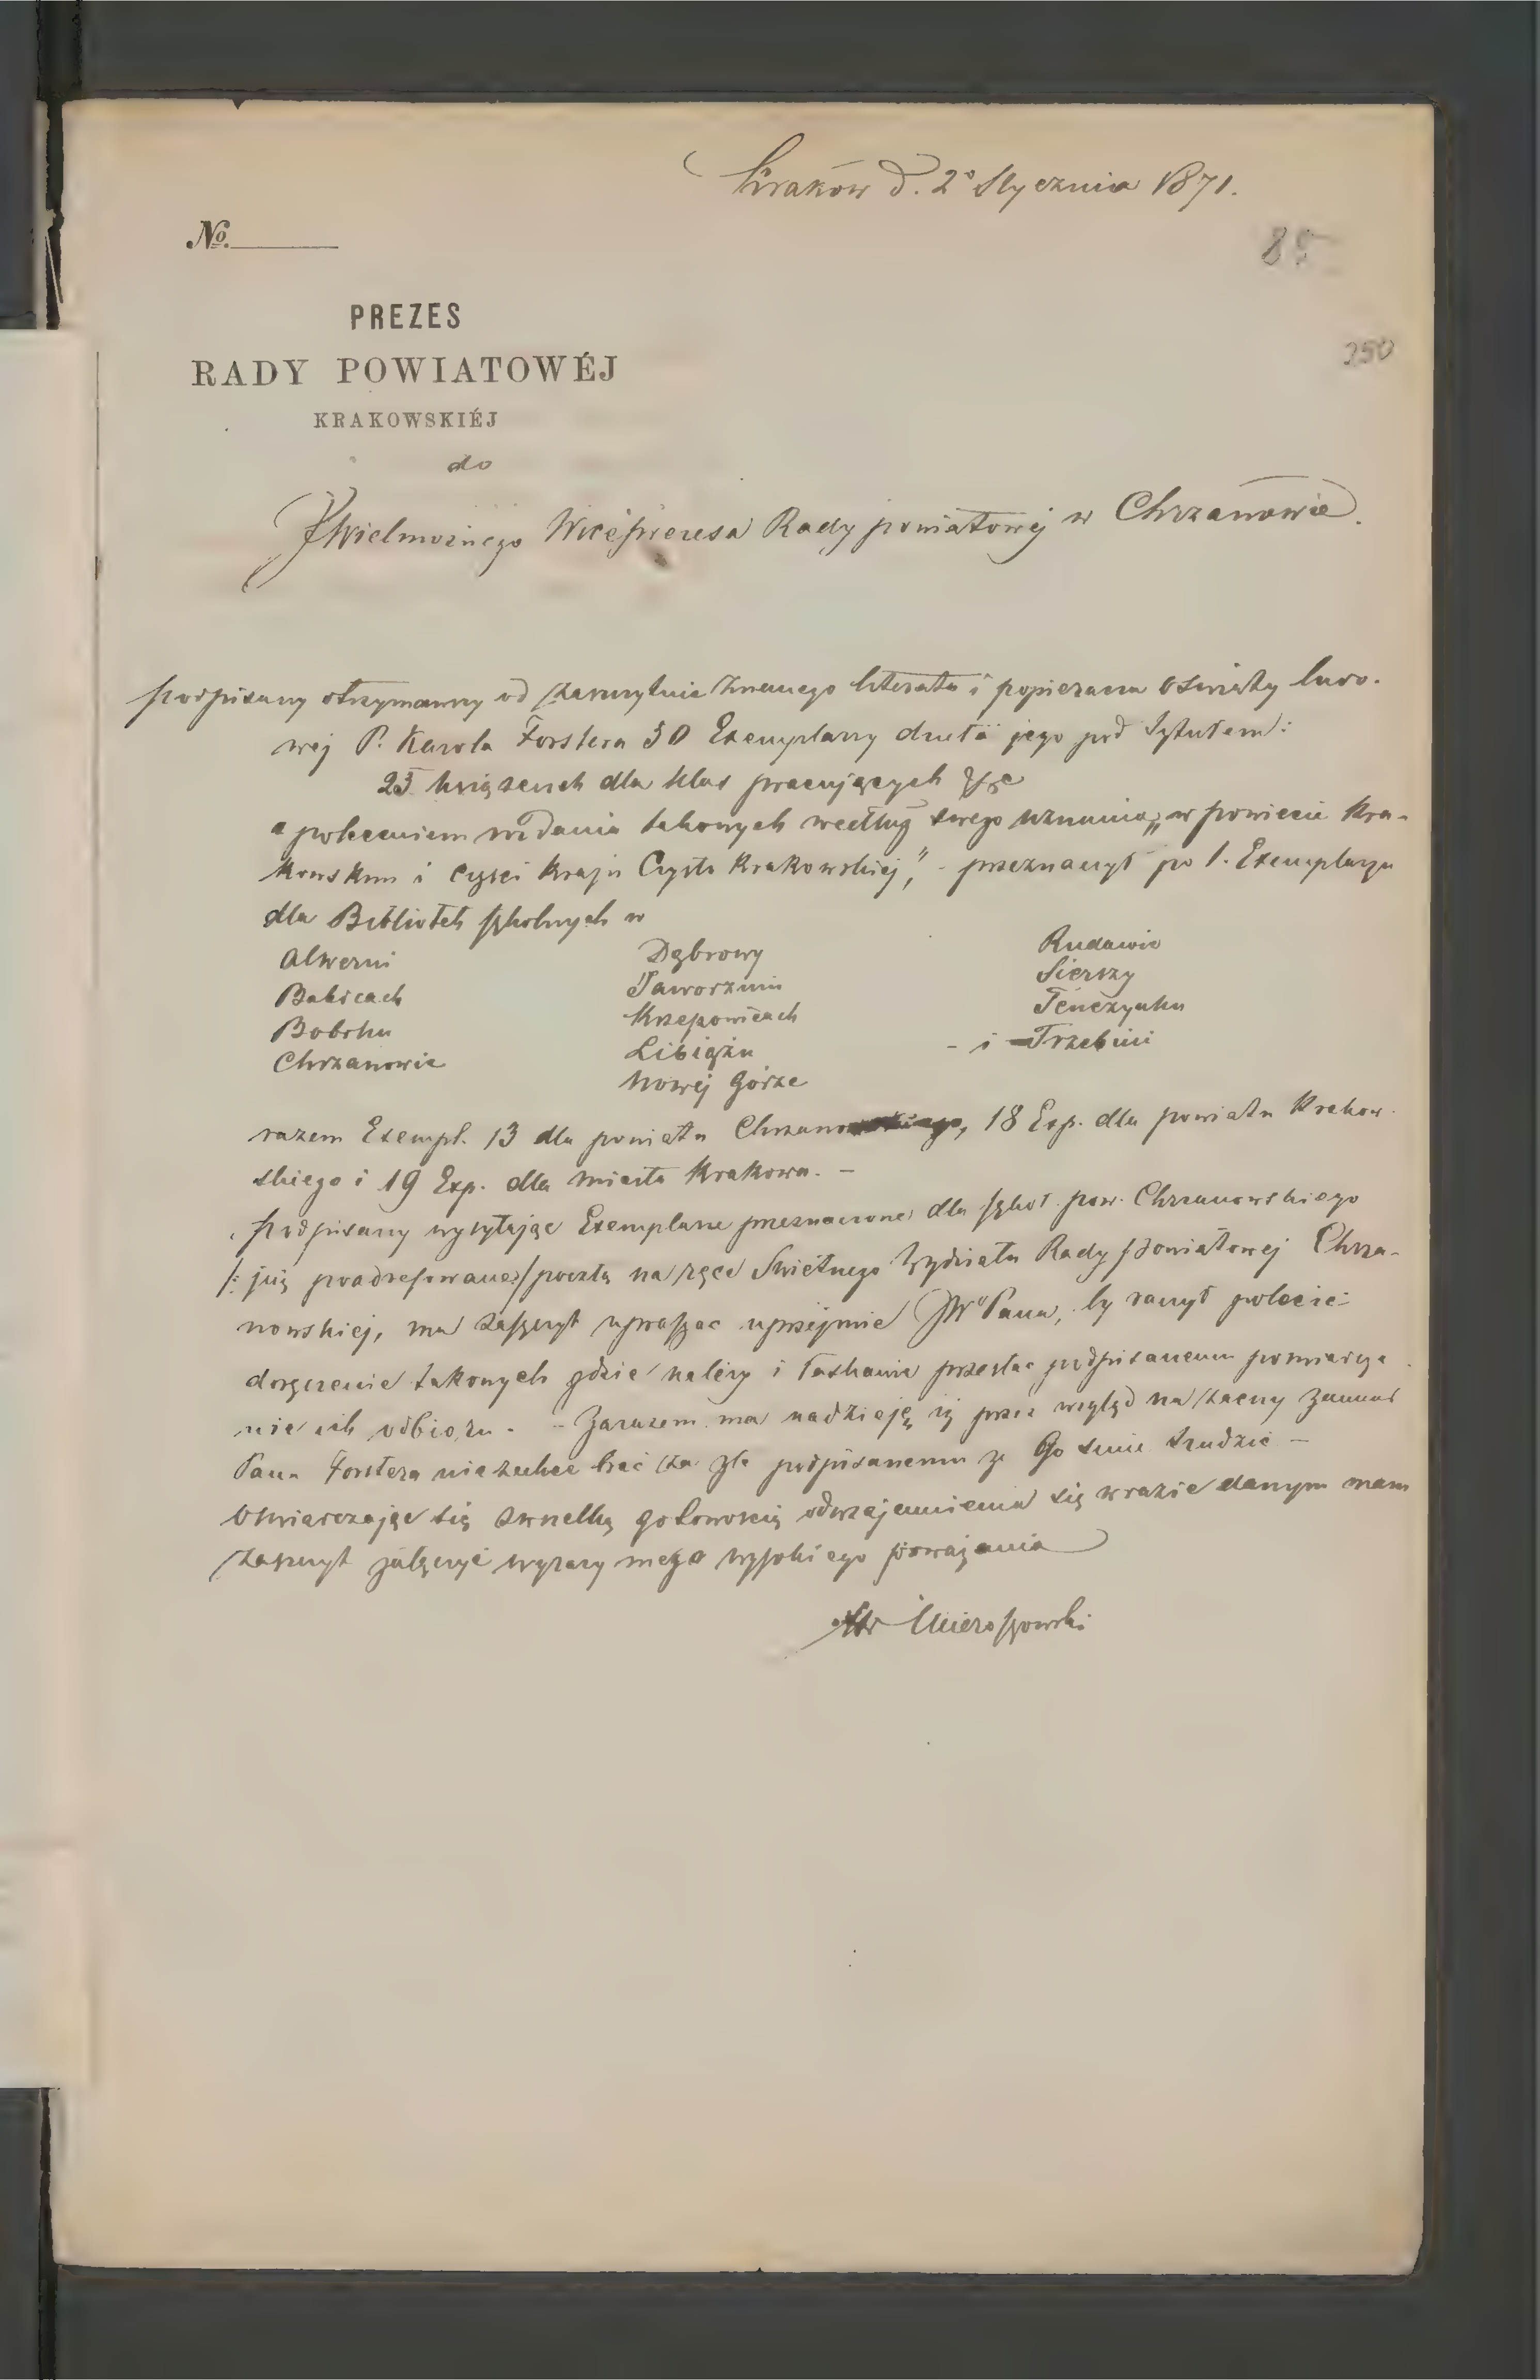 Kraków d. 2° Stycznia 1871.
No.
85
PREZES
RADY POWIATOWÉJ
250
KRAKOWSKIÉJ
do
JWielmożnego Wiceprezesa Rady powiatowéj w Chrzanowie.
Podpisany otrzymawszy od zaszczytnie znanego literata i popieracza oświaty ludo-
wej P. Karola Forstera 50 Exemplarzy dzieła jego pod tytułem:
25 książeczek dla klas pracujących
z poleceniem rozdania takowych według swego uznania „w powiecie Kra-
kowskim i części kraju Krakowskiej," - przeznaczył po 1. Exemplarzu
dla Bibliotek szkolnych w
Alwerni Dąbrowy Rudawie
Babicach Jaworzniu Sierszy
Bobrku Krzeszowicach Tenczynku
Chrzanowie Libiążu - i Trzebini
Nowéj Górze
razem Exempl. 13 dla powiatu 18 Exp. dla powiatu Krakow-
skiego i 19 Exp. dla miasta Krakowa. -
Podpisany wysyłając Exemplarze przeznaczone dla szkół pow. Chrzanowskiego
/: już poadresowane :/ pocztą na ręce Świetnego Wydziału Rady Powiatowej Chrza-
nowskiej, ma zaszczyt upraszać uprzejmie JWo Pana, by raczył polecić
doręczenie takowych gdzie należy i łaskawie przesłać podpisanemu
nie ich odbioru. - Zarazem ma nadzieję iż przez wzgląd na zacny zamiar
Pana Forstera nie zechce brać za złe podpisanemu że Go śmie trudzić -
Oświadczając się z wszelką gotowością odwzajemnienia się w razie danym mam
zaszczyt załączyć wyrazy mego wysokiego poważania
Mieroszowski